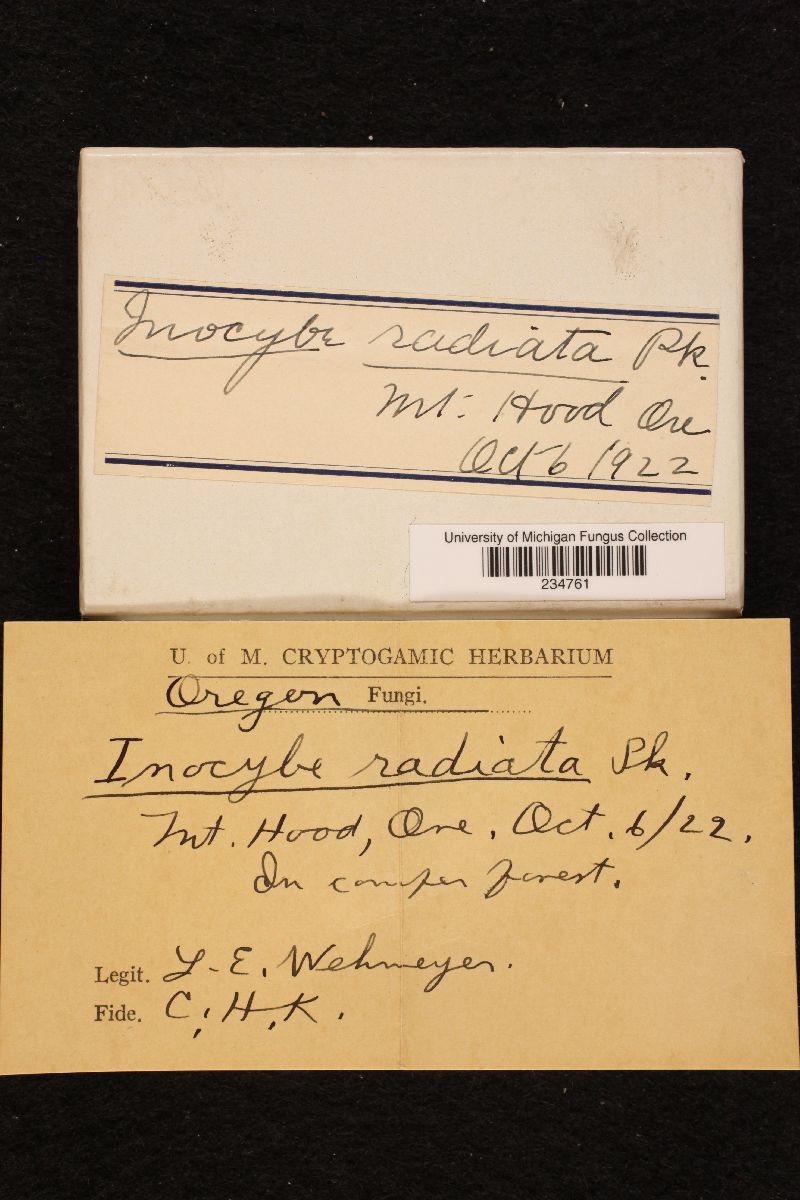 Inocybe radiata Pk.
Mt. Hood Ore
Oct 6 1922
University of Michigan Fungus Collection
234761
U. of M. CRYPTOGAMIC HERBARIUM
Oregon Fungi.
Inocybe radiata Pk.
Mt. Hood, Ore. Oct. 6/22.
In conifer forest.
Legit. L. E. Wehmeyer.
Fide. C. H. K.